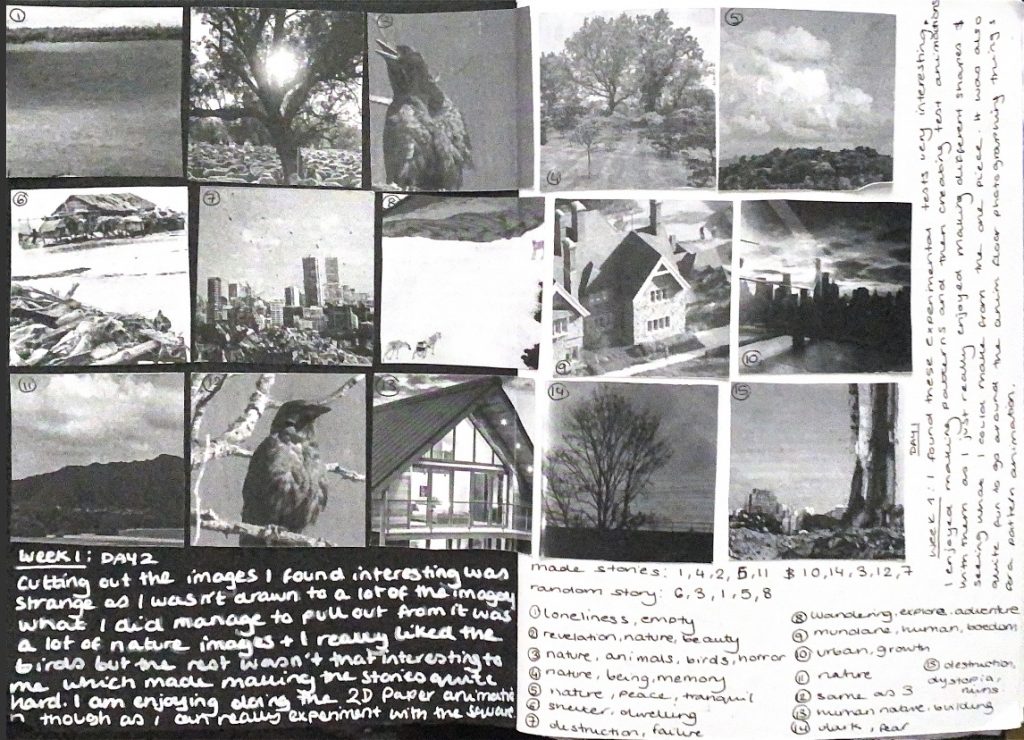 1
2
3
4
5
6
7
8
9
10
11
12
13
14
15
Week 1: DAY 2
Cutting out the images I found interesting was
strange as I wasn't drawn to a lot of the imagery
what I did manage to pull out from it was
a lot of nature images + I really liked the
birds but the rest wasn't that interesting to
me which made making the stories quite
hard. I am enjoying doing the 2D Paper animatio
n though as I can really experiment with the square
made stories: 1,4,2,5,11 & 10,14,3,12,7
random story: 6,3,1,5,8
1 loneliness, empty
2 revelation, nature, beauty
3 nature, animals, birds, horror
4 nature, being, memory
5 nature, peace, tranquil
6 shelter, dwelling
7 destruction, failure
8 Wandering, explore, adventure
9 mundane, human, boedom
10 urban, growth
11 nature
12 same as 3
13 human nature, building
14 dark, fear
15 destruction,
dystopia,
ruins
DAY 1
Week 1: I found these experimental tests very interesting.
I enjoyed making patterns and then creating test animations
with them as I just really enjoyed making different shapes &
seeing what I could make from the one piece. It was also
quite fun to go around the room photographing things
for a pattern animation.